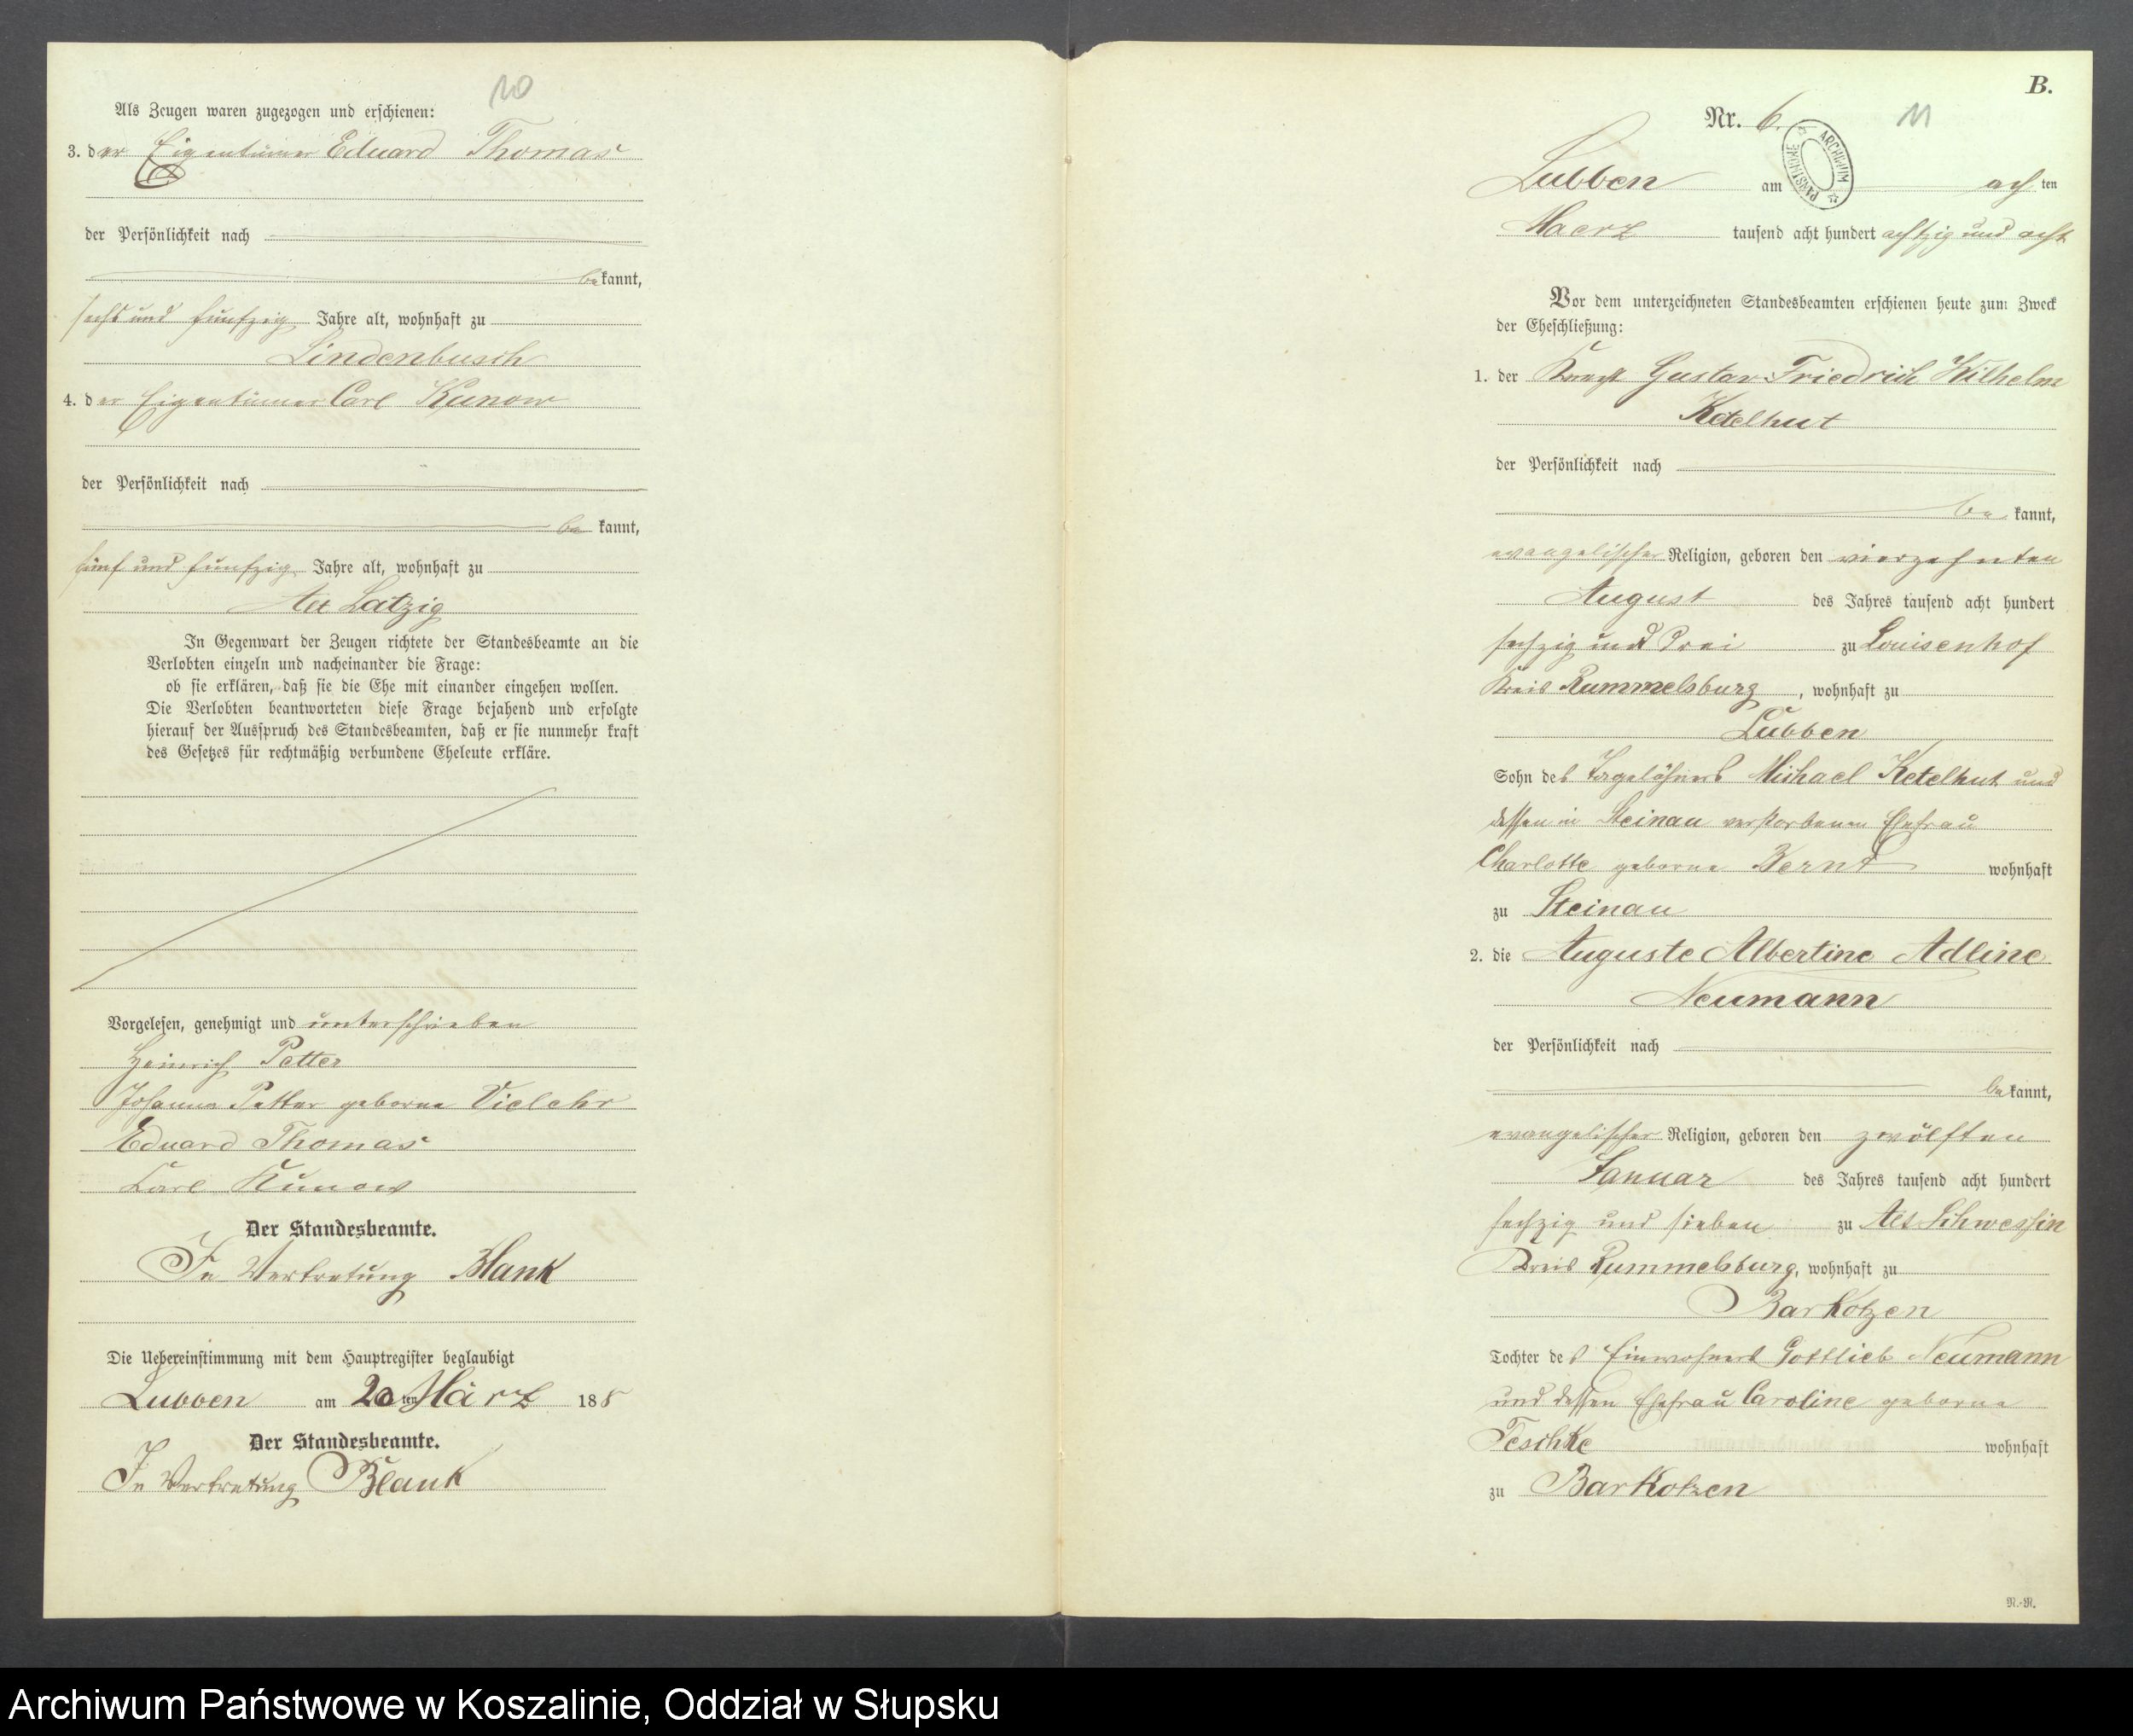 10
Als Zeugen waren zugezogen und erschienen:
3. der Eigentümer Eduard Thomas
der Persönlichkeit nach
bekannt,
sechs und funfzig Jahre alt, wohnhaft zu
Lindenbusch
4. der Eigentümer Carl Kunow
der Persönlichkeit nach
be kannt,
fünf und funfzig Jahre alt, wohnhaft zu
Alt Latzig
In Gegenwart der Zeugen richtete der Standesbeamte an die
Verlobten einzeln und nacheinander die Frage:
ob sie erklären, daß sie die Ehe mit einander eingehen wollen.
Die Verlobten beantworteten diese Frage bejahend und erfolgte
hierauf der Ausspruch des Standesbeamten, daß er sie nunmehr kraft
des Gesetzes für rechtmäßig verbundene Eheleute erkläre.
Vorgelesen, genehmigt und unterschrieben
Heinrich Petter
Johanna Petter geborne Vielehr
Eduard Thomas
Carl Kunow
Der Standesbeamte.
In Vertretung Blank
Die Uebereinstimmung mit dem Hauptregister beglaubigt
Lubben am 20 ten März 1888
Der Standesbeamte.
In Vertretung Blank
B.
Nr. 6.
11
ARCHIWUM PAŃSTWOWE
Lubben am ach ten
Maerz tausend acht hundert achtzig und acht
Vor dem unterzeichneten Standesbeamten erschienen heute zum Zweck
der Eheschließung:
1. der Knecht Gustav Friedrich Wilhelm
Ketelhut
der Persönlichkeit nach
be kannt,
evangelischer Religion, geboren den vierzehnten
August des Jahres tausend acht hundert
sechzig und drei zu Louisenhof
Kreis Rummelsburg, wohnhaft zu
Lubben
Sohn des Tagelöhners Michael Ketelhut und
dessen in Steinau verstorbenen Ehefrau
Charlotte geborne Bernd wohnhaft
zu Steinau
2. die Auguste Albertine Adline
Neumann
der Persönlichkeit nach
bekannt,
evangelischer Religion, geboren den zwölften
Januar des Jahres tausend acht hundert
sechzig und sieben zu Alt Schwessin
Kreis Rummelsburg, wohnhaft zu
Barkotzen
Tochter des Einwohners Gottlieb Neumann
und dessen Ehefrau Caroline geborne
Teschke wohnhaft
zu Barkotzen
N.-N.
Archiwum Państwowe w Koszalinie, Oddział w Słupsku